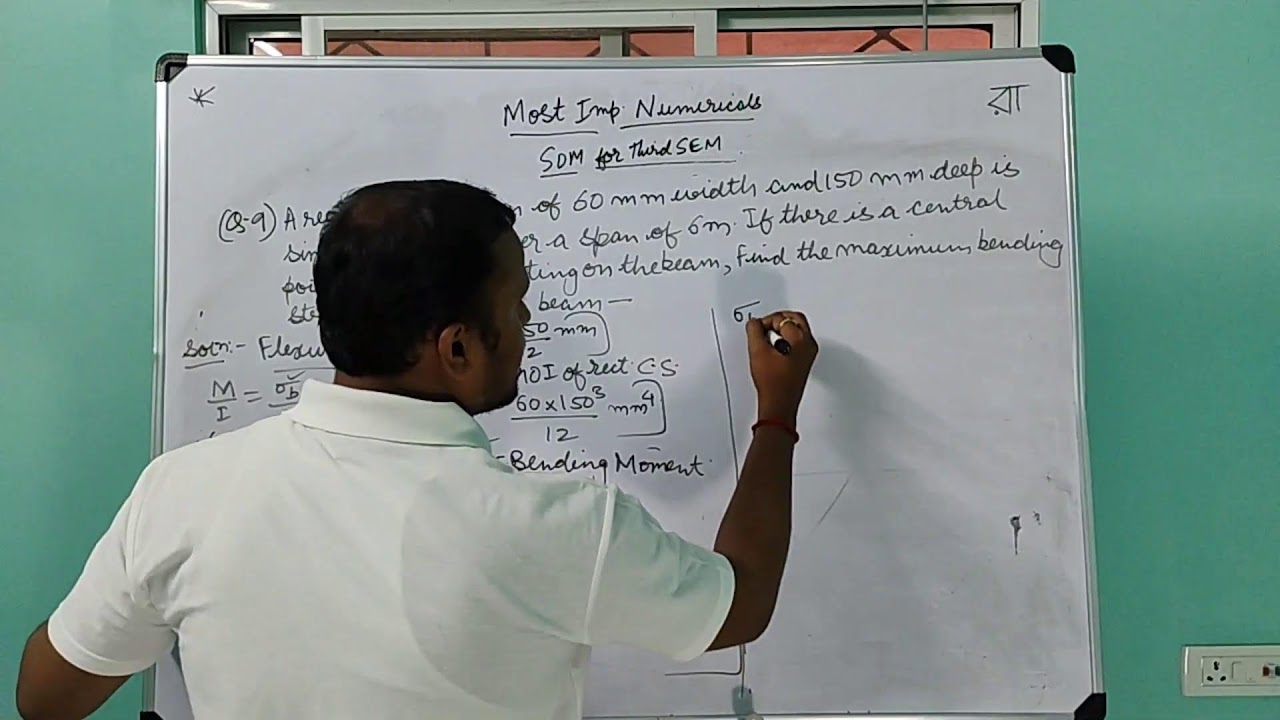 রা
Most Imp. Numericals
SOM for Third SEM
(Q-9) A re of 60 mm width and 150 mm deep is
sim er a span of 6m. If there is a central
poi ting on the beam, find the maximum bending
st beam —
Soln:- Flexu 50 mm
2
M/I = σb MOI of rect. C.S.
60 x 150³ mm⁴
12
Bending Moment
σ